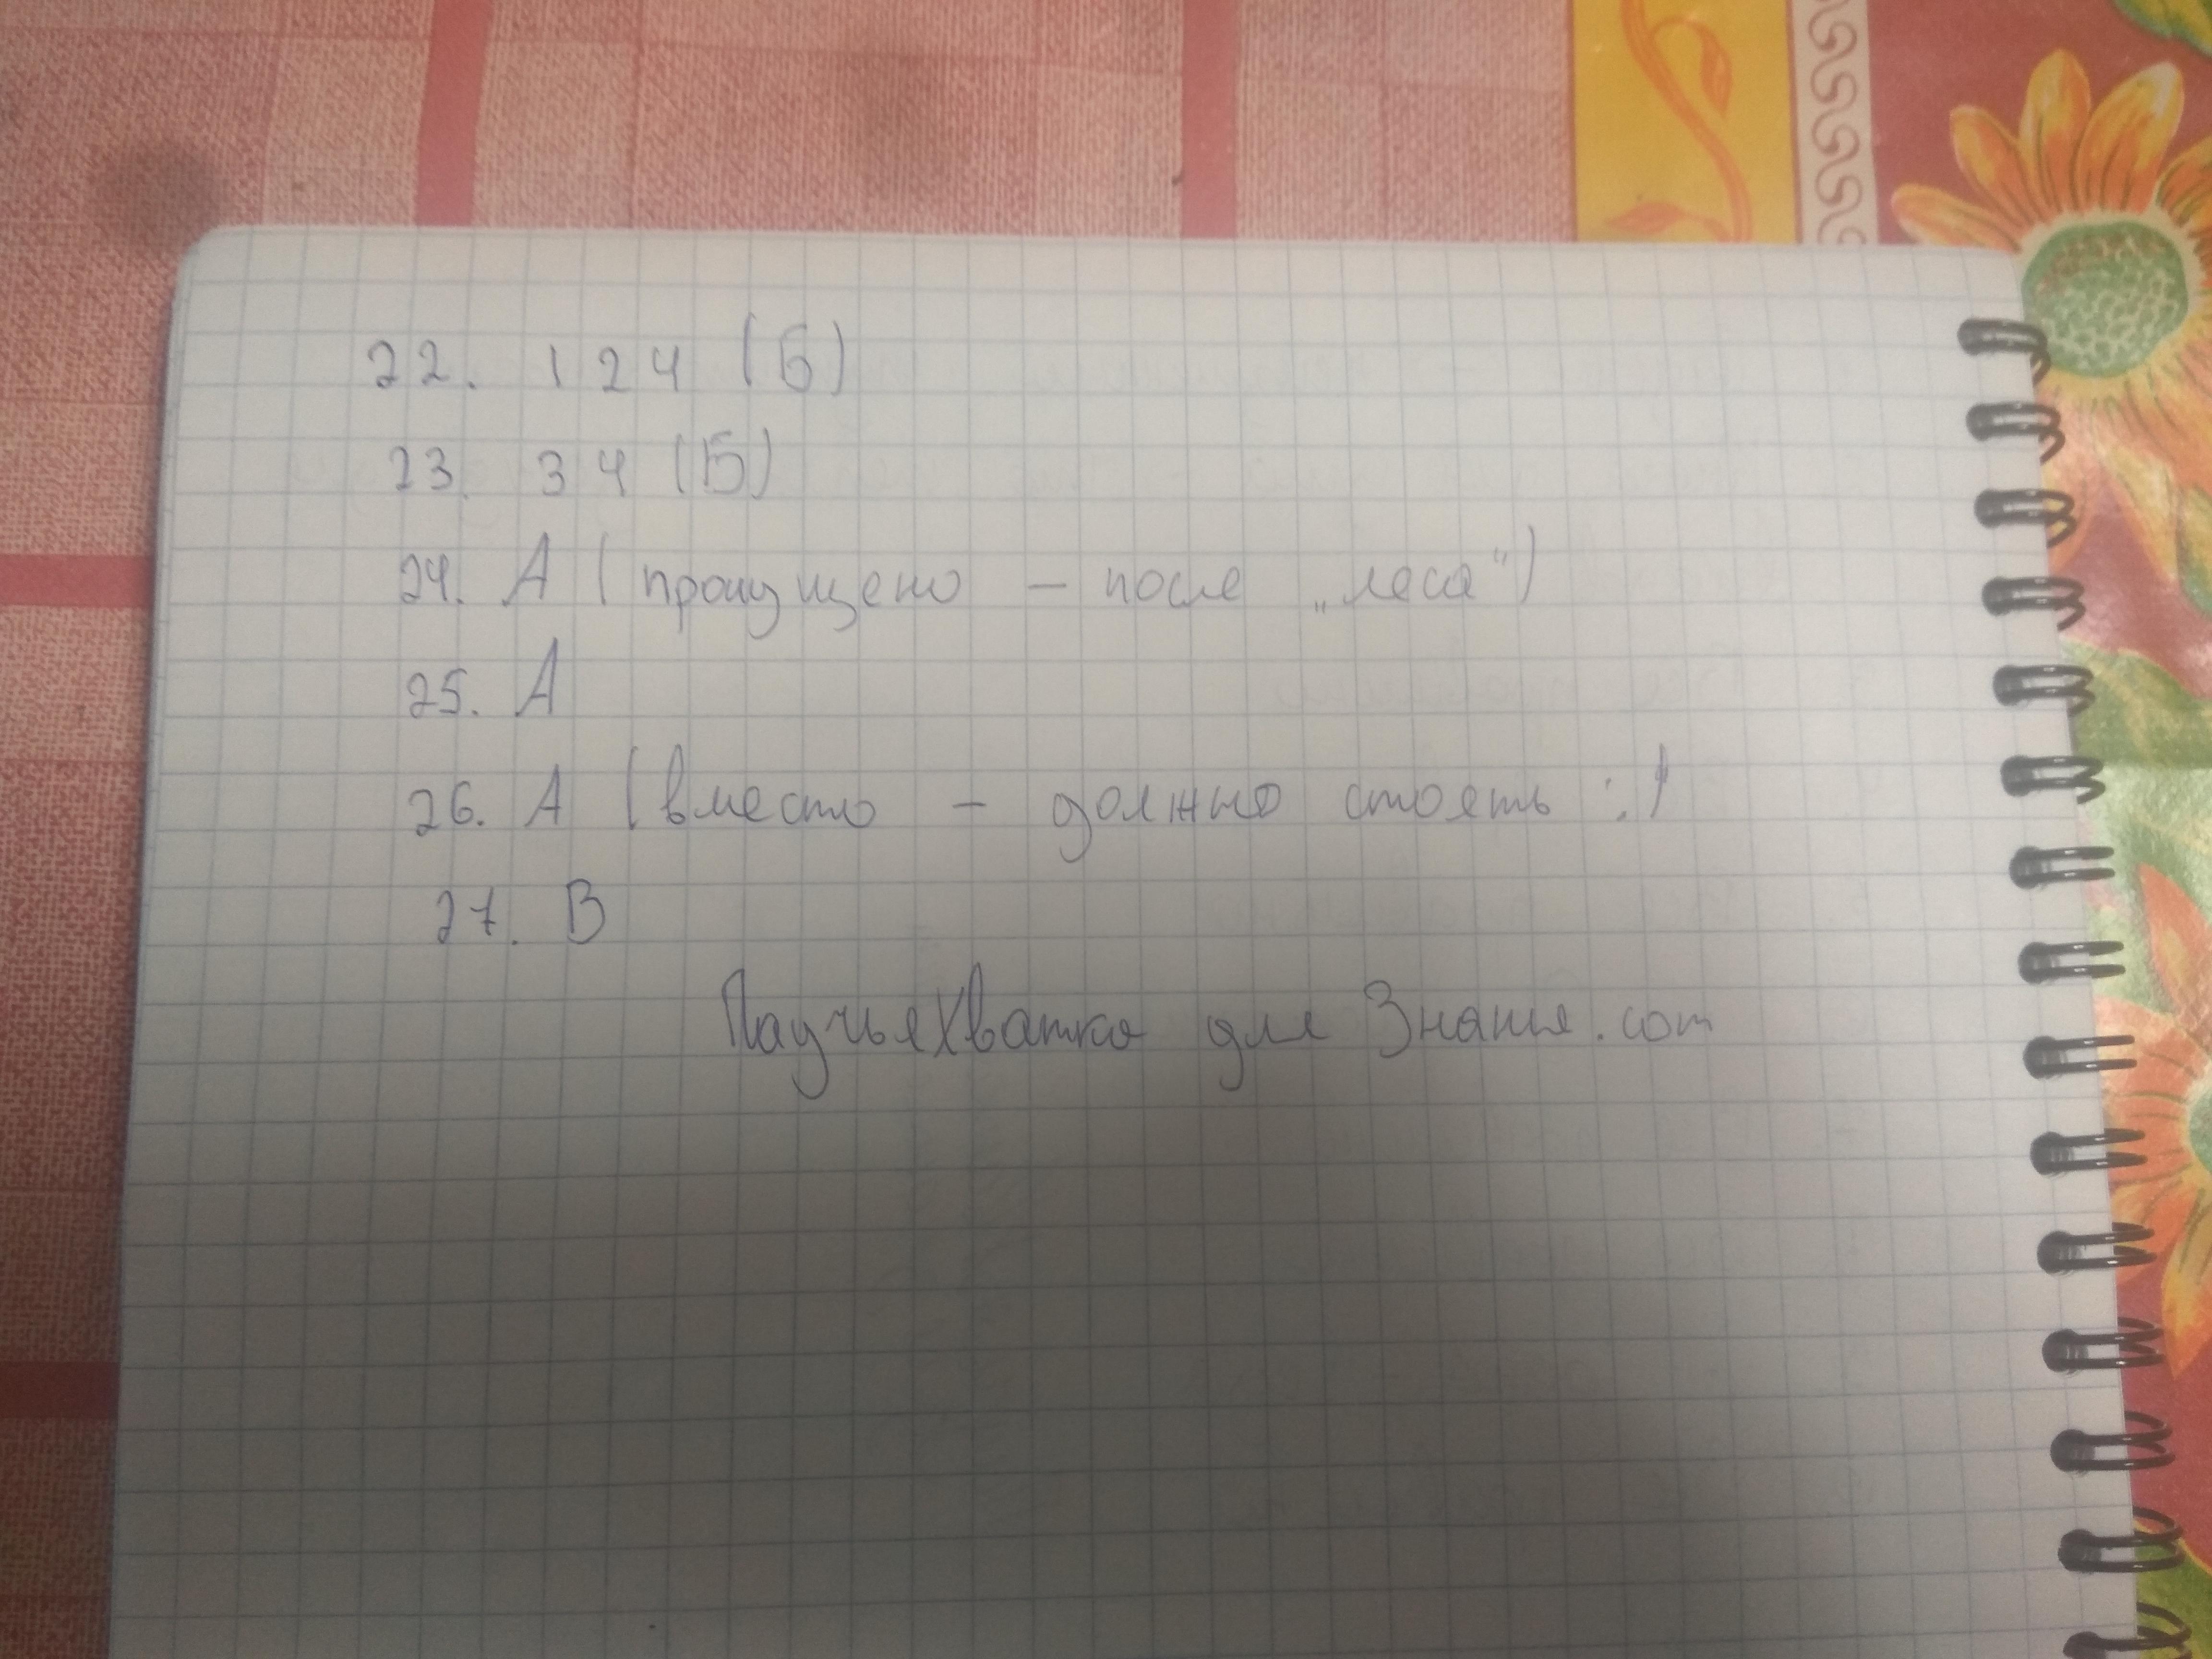 22. 1 2 4 (Б)
23. 3 4 (Б)
24. А (пропущено – после „леса")
25. А
26. А (вместо – должно стоять :)
27. В
ПаучьяХватка для Знания.com